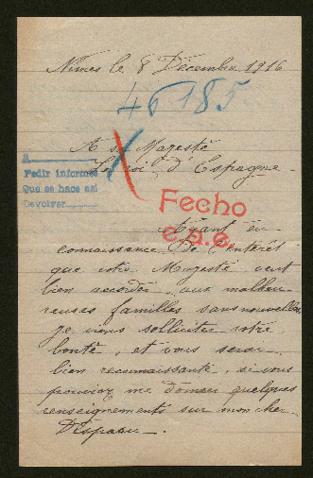 Nîmes le 8 Décembre 1916
45185
A sa Majesté
Le roi d'Espagne.
A
Pedir informes
Que se hace así
Devolver
Fecho
Ayant eu
connaissance de l'intérêt
que votre Majesté veut
bien accorder aux malheu
reuses familles sans nouvelles
je viens solliciter votre
bonté, et vous serai
bien reconnaissante, si vous
pouviez me donner quelques
renseignements sur mon cher
Disparu.